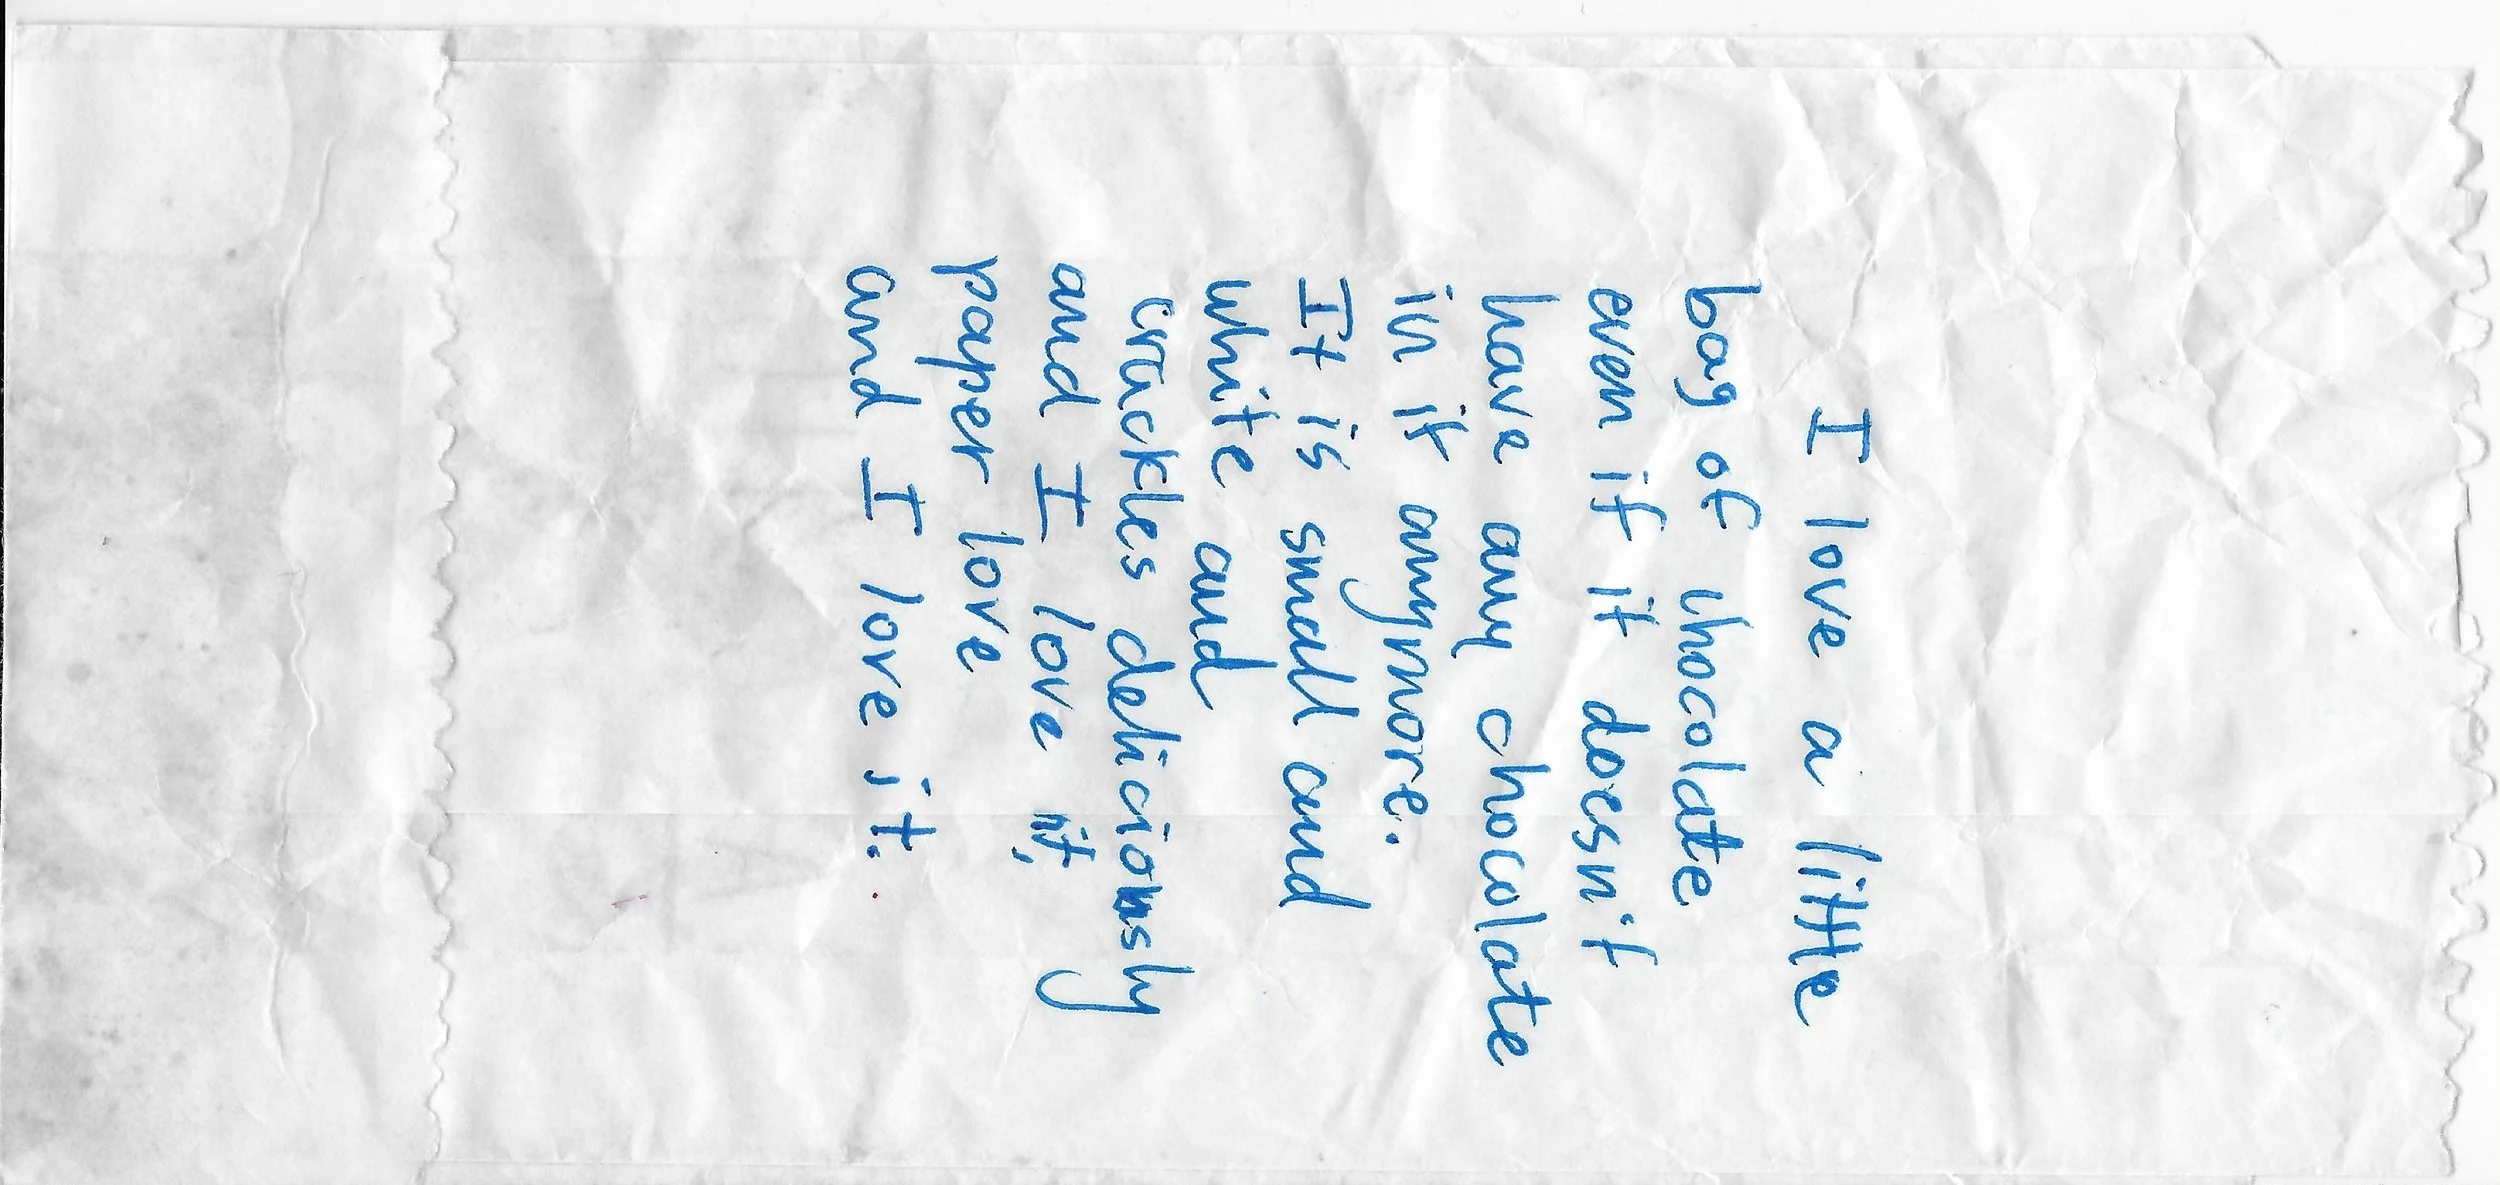 I love a little
bag of chocolate
even if it doesn't
have any chocolate
in it anymore.
It is small and
white and
crackles deliciously
and I love it,
paper love
and I love it.